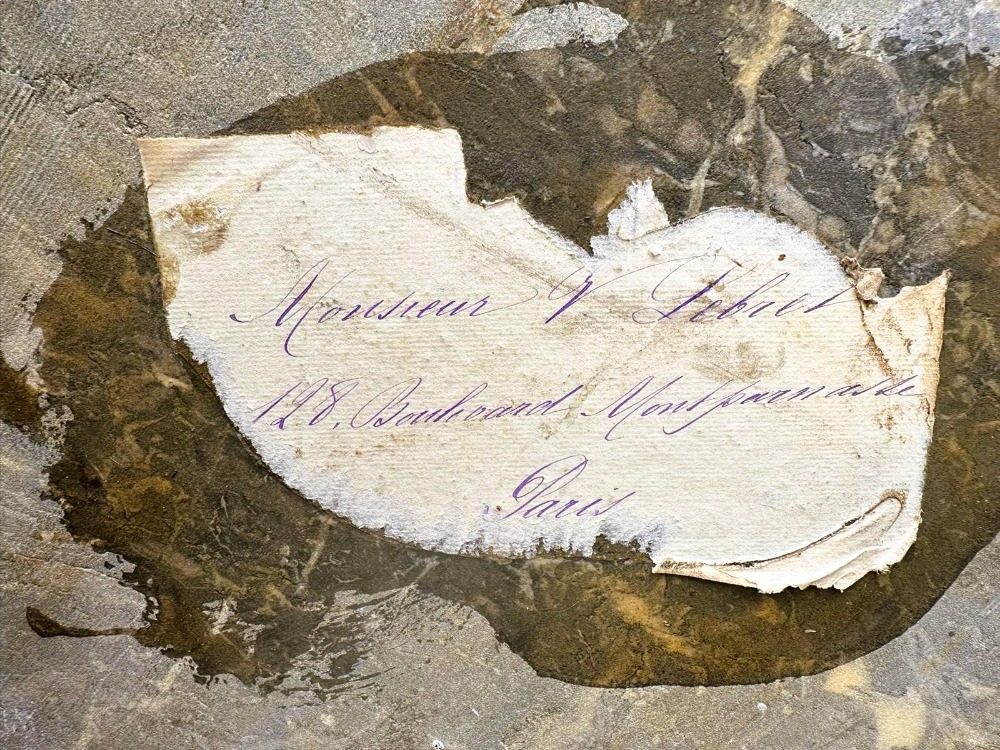 Monsieur V Lebret
128, Boulevard Montparnasse
Paris